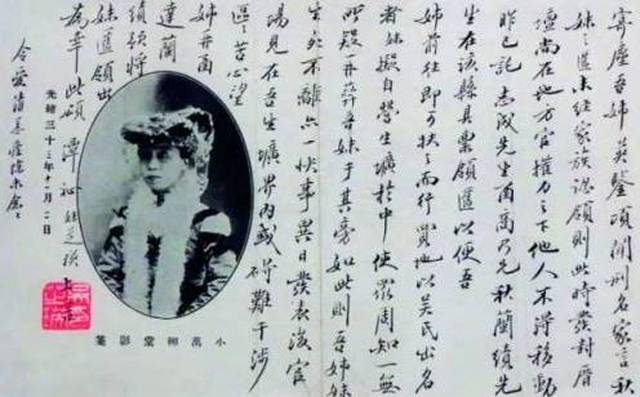 寄塵吾姊英鑒頃聞刑名家言秋
妹之匶未經家族認領則此時發封厝
壇尚在地方官權力之下他人不得移動
昨已託志成先生函商乃兄秋蘭績先
生在該縣具稟領匶以便吾
姊前往即可扶之而行買地以吴氏出名
者妹擬自營生壙於中使眾周知一無
所疑再葬吾妹于其旁如此則吾姊妹
生死不離亦一快事異日發表後官
場見在吾生壙界內或碍難干涉
區〻苦心望
姊再函
達蘭
績須將
妹匶領出
為幸此頌 潭福 妹芝瑛上言
令愛諸恙痊
光緒三十三年十一月二日
小萬柳堂影箋